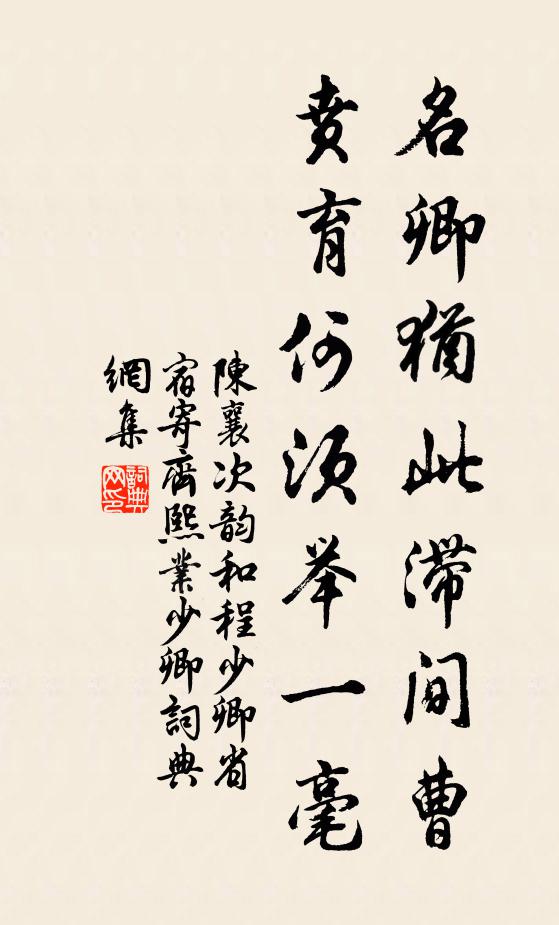 名卿猶此滞间曹
賁育何须举一毫
陳襄次韵和程少卿省
宿寄齊熙業少卿詞典
網集
詞典网印